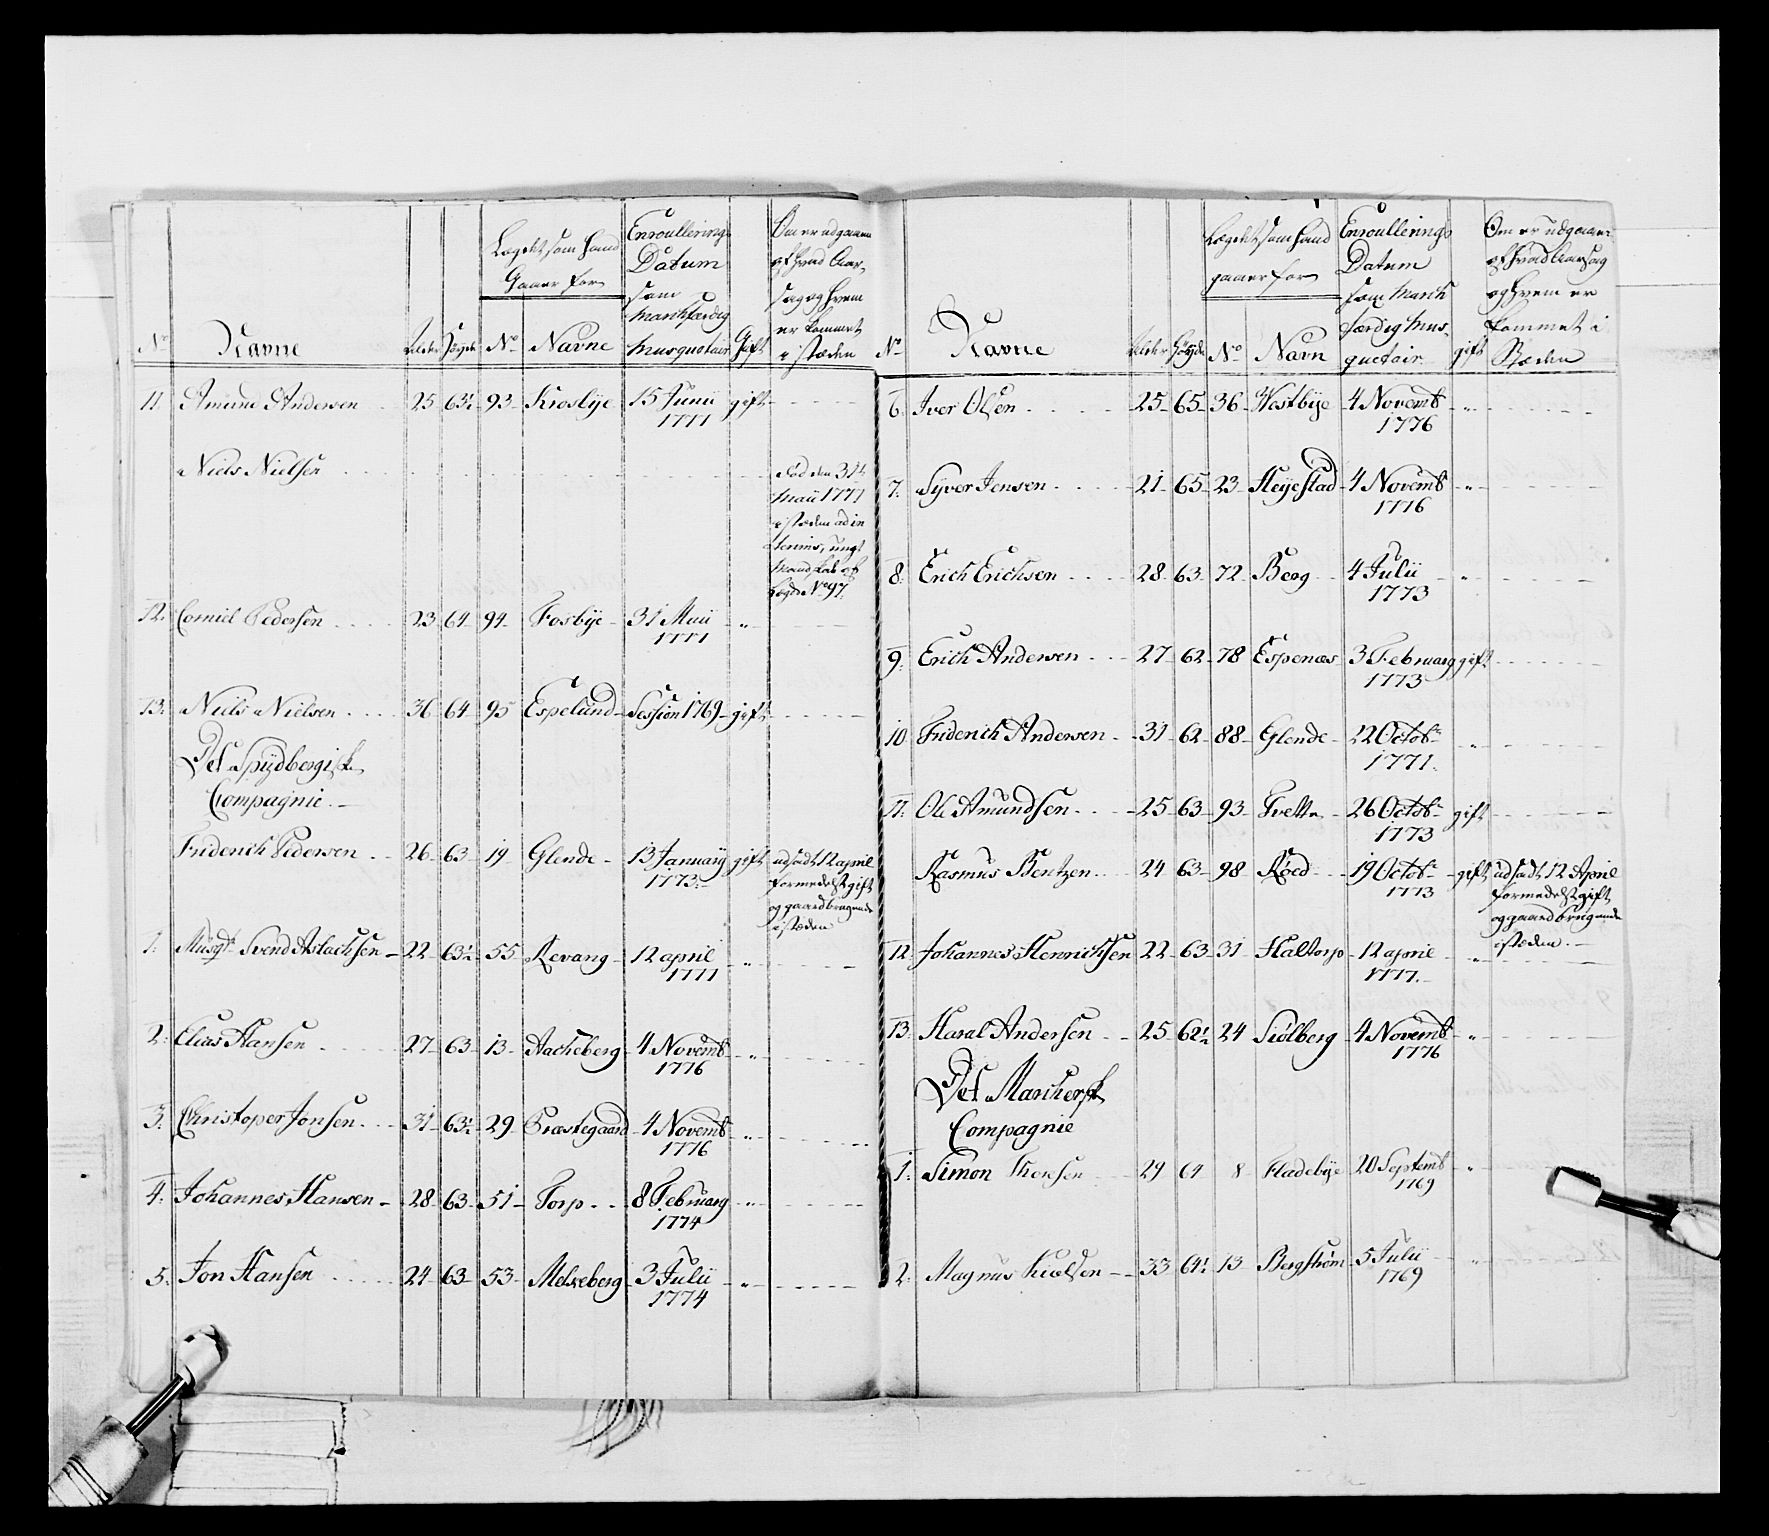 No
Navne
Alder
Høyde
Lægdet som hand
Gaaer for
No
Navne
Enroullerings
Datum
som
Marchfærdig
Musquetair
Gift
Om er udgaaen
af hvad Aar-
sag og hvem
er kommet
i stæden
11. Amund Andersen 25 63½ 93 Krosbye 15 Junii gift
1777
Niels Nielsen
død den 31te
Maii 1777
i stæden ad in-
terims, ungt
Mand, Lab af
Legde No 97.
12. Corniel Pedersen 23 64 94 Fosbye 31 Maii "
1777
13. Niels Nielsen 36 64 95 Espelund Session 1769 gift
Det Spydbergiske
Compagnie.
Friderich Pedersen 26 63 19 Glende 13 January gift udsadt 12 april
1773.
formedelst gift
og gaardbrugende
i stæden
1. Musqt. Svend Aslachsen 22 63½ 55 Revang 12 april "
1777
2. Elias Hansen 27 63 13 Aacheberg 4 Novemb "
1776
3. Christoper Jonsen 31 63½ 29 Præstegaard 4 Novemb "
1776
4. Johannes Hansen 28 63 51 Torp 8 February "
1774
5. Jon Hansen 24 63 53 Melseberg 3 Julii "
1774
No
Navne
Alder
Høyde
Lægdet som hand
gaaer for
No
Navn
Enroullerings
Datum
som March
færdig Mus-
quetair
gift
Om er udgaaen
af hvad Aarsag
og hvem er
kommet i
Stæden
6. Iver Olsen 25 65 36 Westbye 4 Novemb "
1776
7. Syver Jensen 21 65 23 Heyestad 4 Novemb "
1776
8. Erich Erichsen 28 63 72 Berg 4 Julii "
1773
9. Erich Andersen 27 62 78 Espenæs 3 February gift
1773
10 Friderich Andersen 31 62 88 Glende 22 Octobr "
1771.
11. Ole Amundsen 25 63 93 Tvetter 26 Octobr gift
1773
Rasmus Bentzen 24 63 98 Røed 19 Octobr gift udsadt 12 April
1773
formedelst gift
og gaardbrugende
i stæden.
12. Johannes Henrichsen 22 63 31 Haltorp 12 april "
1777.
13. Haral Andersen 25 62½ 24 Siølberg 4 Novemb "
1776
Det Marcherske
Compagnie
1. Simon Thoresen 29 64 8 Fladebye 20 Septemb "
1769
2. Magnus Kielsen 33 64½ 13 Bergstrøm 5 Julii "
1769